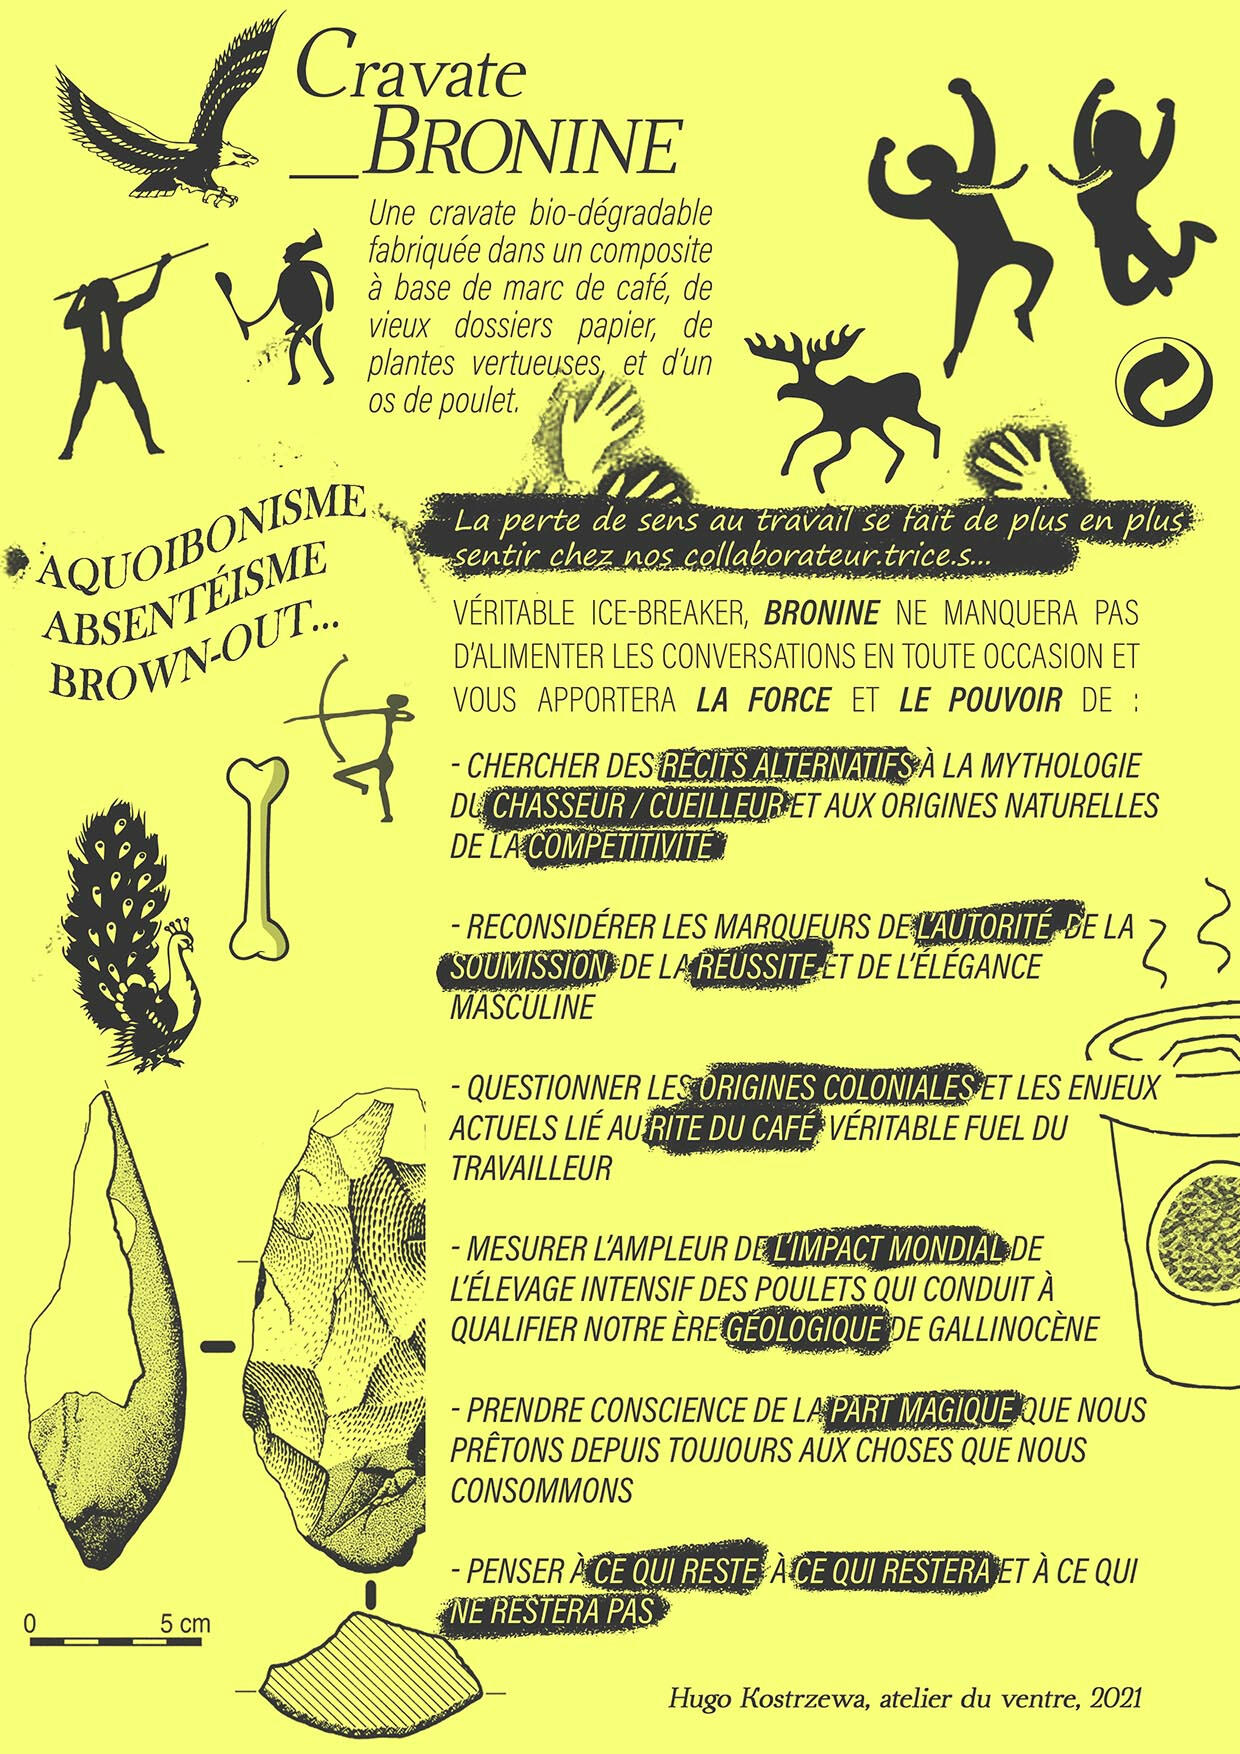 Cravate
_BRONINE
Une cravate bio-dégradable
fabriquée dans un composite
à base de marc de café, de
vieux dossiers papier, de
plantes vertueuses, et d'un
os de poulet.
AQUOIBONISME
ABSENTÉISME
BROWN-OUT...
La perte de sens au travail se fait de plus en plus
sentir chez nos collaborateur.trice.s...
VÉRITABLE ICE-BREAKER, BRONINE NE MANQUERA PAS
D'ALIMENTER LES CONVERSATIONS EN TOUTE OCCASION ET
VOUS APPORTERA LA FORCE ET LE POUVOIR DE :
- CHERCHER DES RÉCITS ALTERNATIFS À LA MYTHOLOGIE
DU CHASSEUR / CUEILLEUR ET AUX ORIGINES NATURELLES
DE LA COMPÉTITIVITÉ
- RECONSIDÉRER LES MARQUEURS DE L'AUTORITÉ DE LA
SOUMISSION DE LA RÉUSSITE ET DE L'ÉLÉGANCE
MASCULINE
- QUESTIONNER LES ORIGINES COLONIALES ET LES ENJEUX
ACTUELS LIÉ AU RITE DU CAFÉ VÉRITABLE FUEL DU
TRAVAILLEUR
- MESURER L'AMPLEUR DE L'IMPACT MONDIAL DE
L'ÉLEVAGE INTENSIF DES POULETS QUI CONDUIT À
QUALIFIER NOTRE ÈRE GÉOLOGIQUE DE GALLINOCÈNE
- PRENDRE CONSCIENCE DE LA PART MAGIQUE QUE NOUS
PRÊTONS DEPUIS TOUJOURS AUX CHOSES QUE NOUS
CONSOMMONS
- PENSER À CE QUI RESTE À CE QUI RESTERA ET À CE QUI
NE RESTERA PAS
0 5 cm
Hugo Kostrzewa, atelier du ventre, 2021